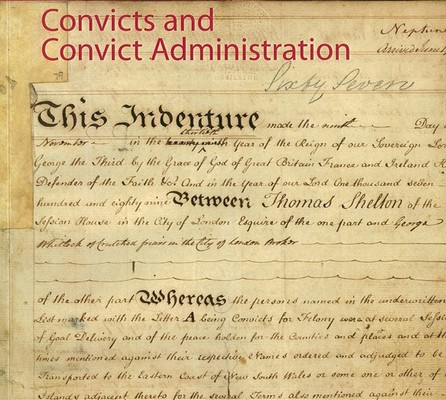 Convicts and
Convict Administration
Neptune
Sixty Seven
This Indenture made the ninth Day
November in the thirtieth Year of the Reign of our Sovereign Lord
George the Third by the Grace of God of Great Britain France and Ireland K
Defender of the Faith &c And in the Year of our Lord One thousand seven
hundred and eighty nine Between Thomas Shelton of the
Session House in the City of London Esquire of the one part and George
Whitlock of in the City of London Broker
of the other part Whereas the persons named in the underwritten
List marked with the Letter A being Convicts for Felony were at several Sessi
of Goal Delivery and of the peace holden for the Counties and places and at th
times mentioned against their respective Names ordered and adjudged to be
Transported to the Eastern Coast of New South Wales or some one or other of
Islands adjacent thereto for the several Terms also mentioned against their